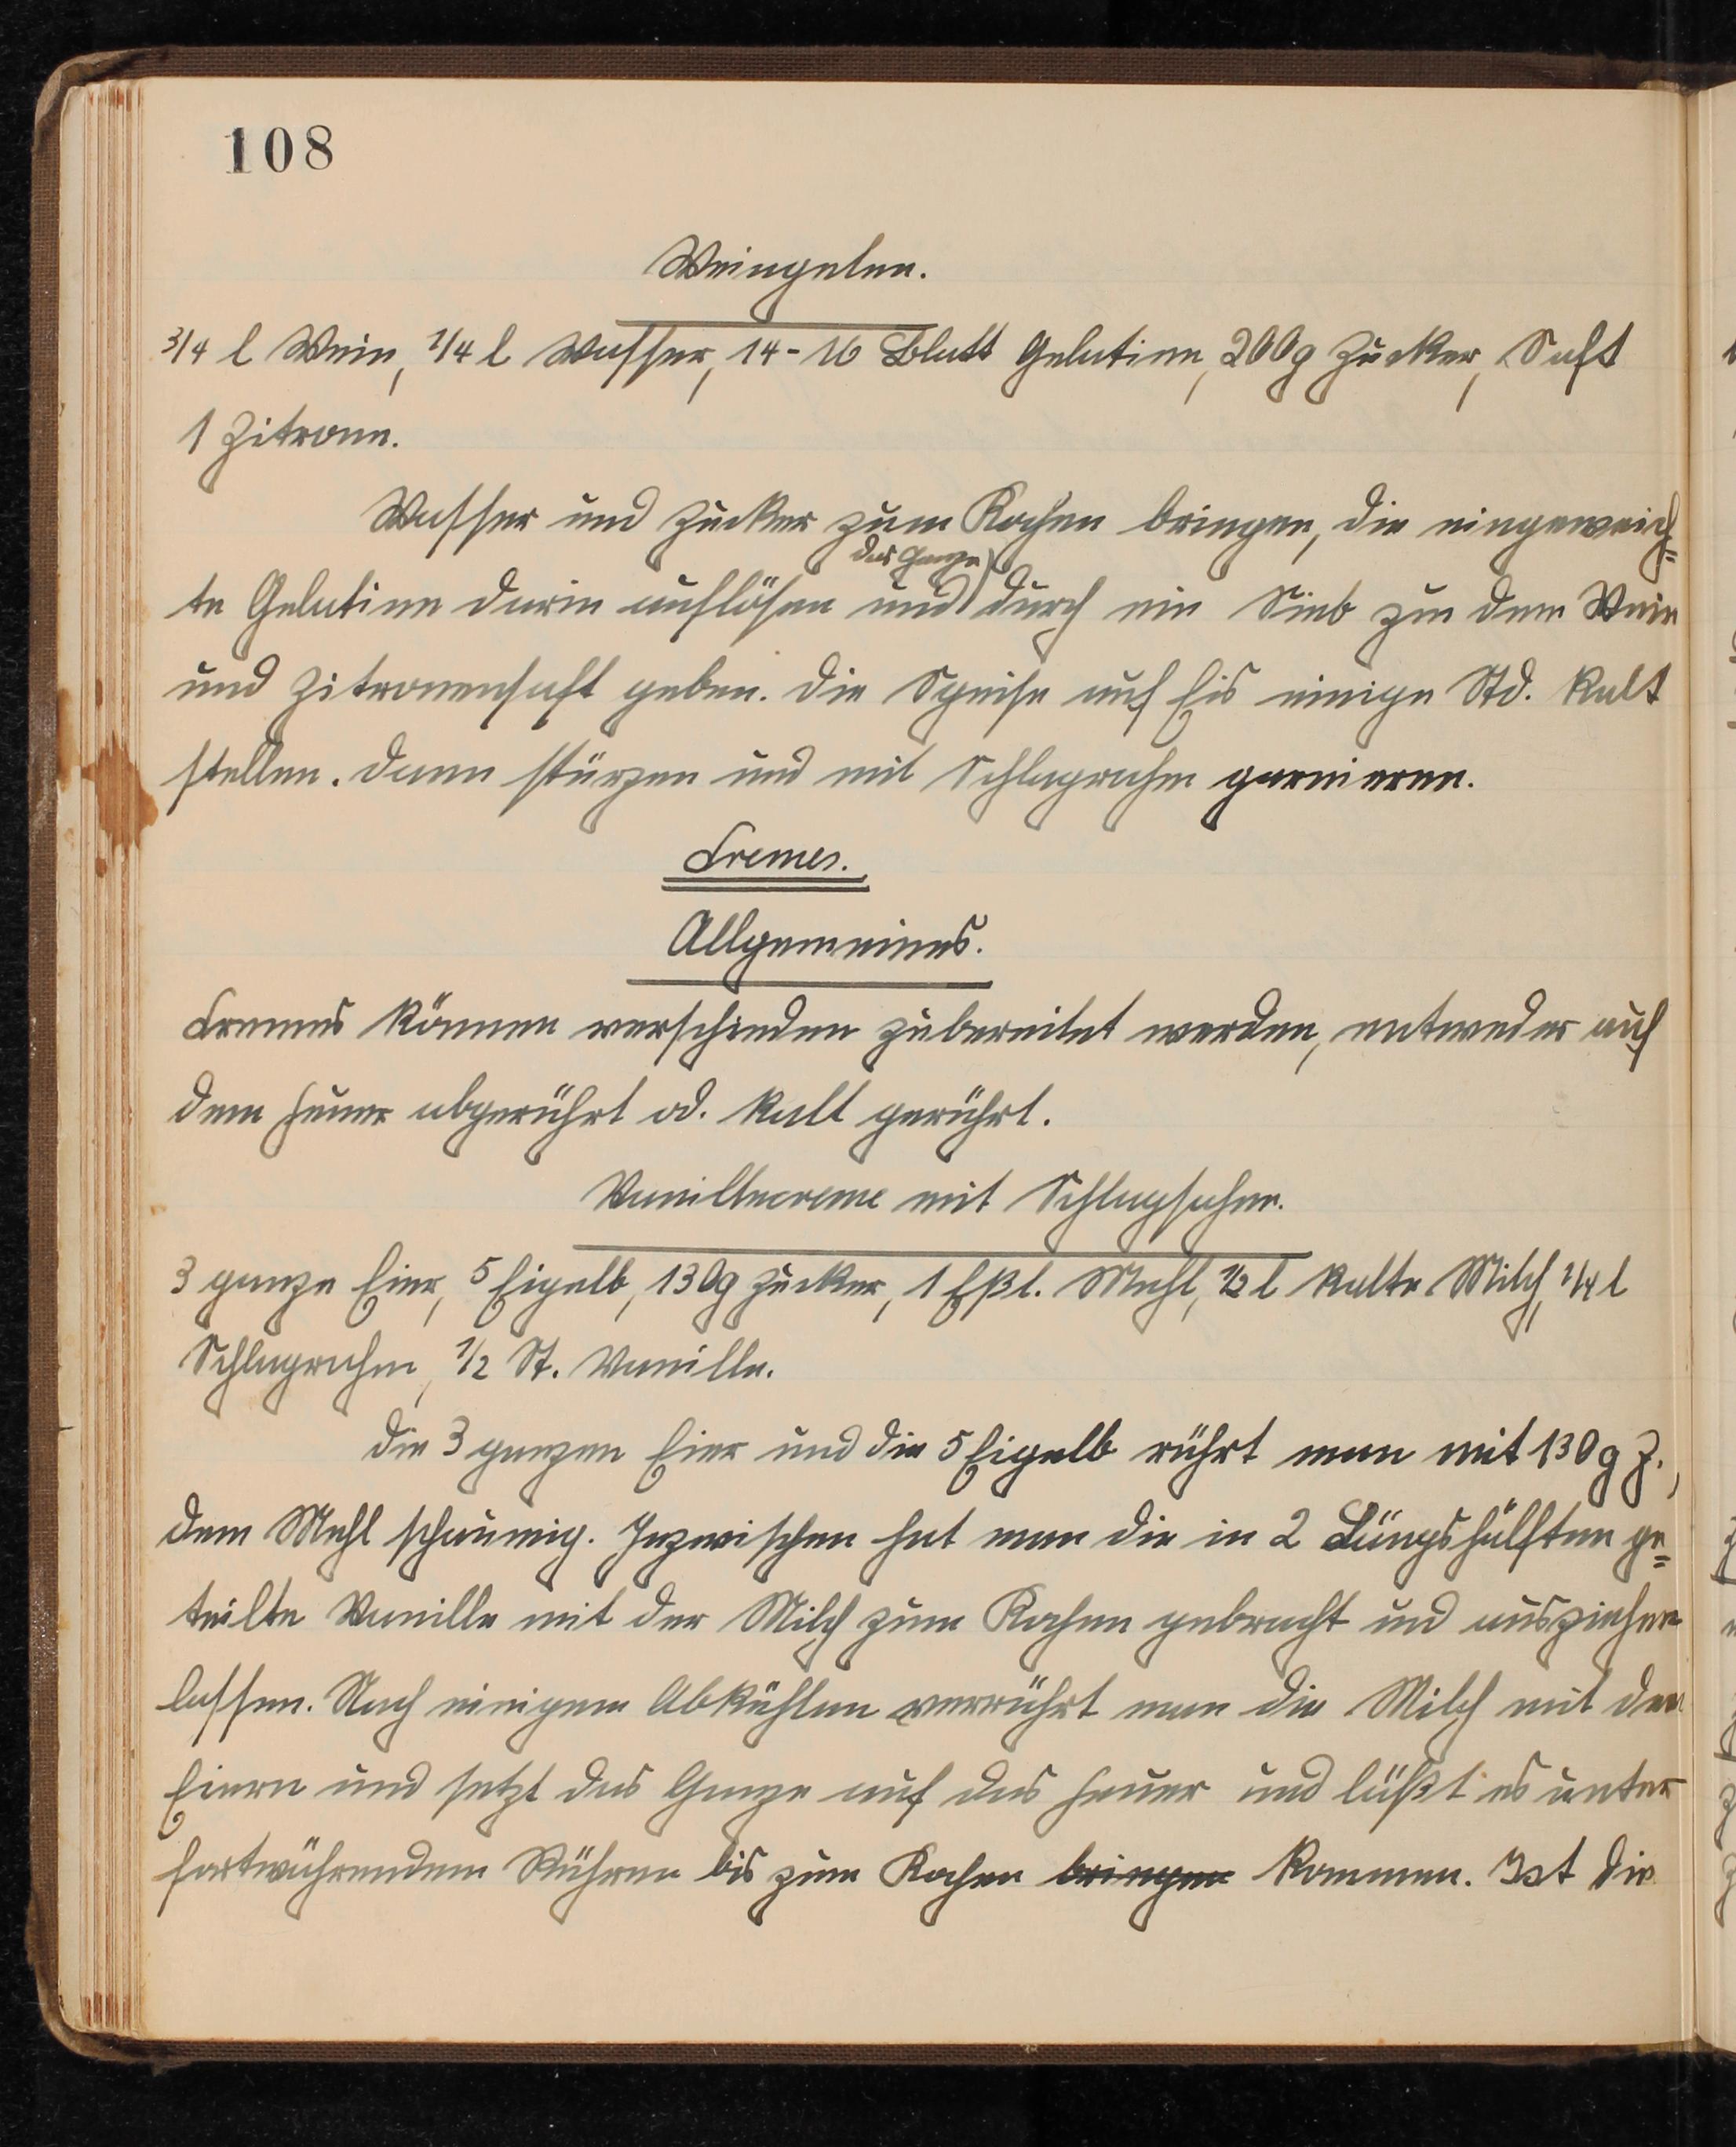 108
Weingelee.
3/4 l Wein, 1/4 l Wasser, 14-16 Blatt Gelatine, 200g Zucker, Saft
1 Zitrone.
Wasser und Zucker zum Kochen bringen, die eingeweich=
das Ganze
te Gelatine darin auflösen und durch ein Sieb zu dem Wein
und Zitronensaft geben. Die Speise auf Eis einige Std. kalt
stellen. Dann stürzen und mit Schlagrahm garnieren.
Cremes.
Allgemeines.
Cremes können verschieden zubereitet werden, entweder auf
dem Feuer abgerührt od. kalt gerührt.
Vanillecreme mit Schlagsahne.
3 ganze Eier, 5 Eigelb, 130g Zucker, 1 Eßl. Mehl, 1/2 l kalte Milch, 1/4 l
Schlagrahm, 1/2 St. Vanille.
Die 3 ganzen Eier und die 5 Eigelb rührt man mit 130g Z.,
dem Mehl schaumig. Inzwischen hat man die in 2 Längshälften ge=
teilte Vanille mit der Milch zum Kochen gebracht und ausziehen
lassen. Nach einigem Abkühlen verrührt man die Milch mit den
Eiern und setzt das Ganze auf das Feuer und läßt es unter
fortwährendem Rühren bis zum Kochen bringen kommen. Ist die